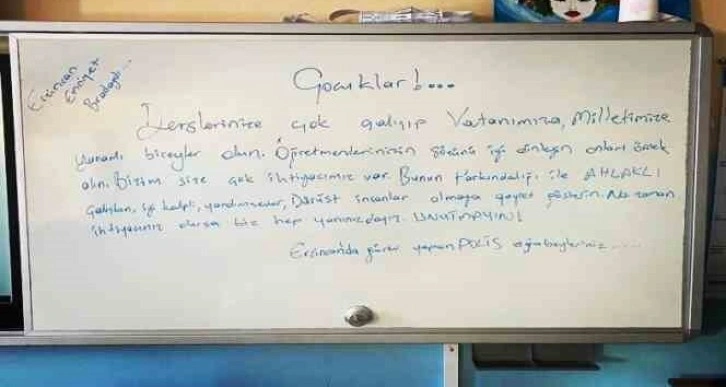 Erzincan
Emniyet
Buradaydı...
Çocuklar!...
Derslerinize çok çalışıp Vatanımıza, Milletimize
yararlı bireyler olun. Öğretmenlerinizin sözünü iyi dinleyin onları örnek
alın. Bizim size çok ihtiyacımız var. Bunun farkındalığı ile AHLAKLI
çalışkan, iyi kalpli, yardımsever, Dürüst insanlar olmaya gayret gösterin. Ne zaman
ihtiyacınız olursa biz hep yanınızdayız. UNUTMAYIN!
Erzincan'da görev yapan POLİS ağabeyleriniz.....